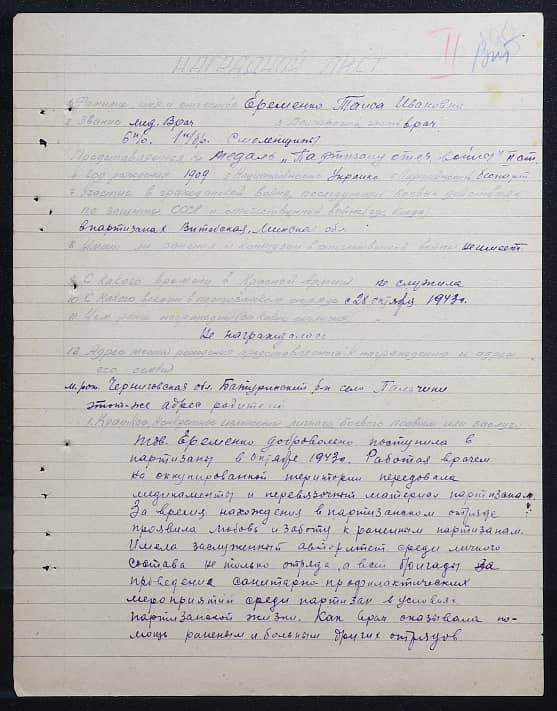 II Вит
НАГРАДНОЙ ЛИСТ
1. Фамилия, имя и отчество Еременко Таиса Ивановна
2. Звание мед. Врач 3. врач
6 1 Смоленщины
Представляется к Медаль „Партизану отеч войны" II ст.
4. Год рождения 1909 5. Национальность Украинка 6. Партийность беспарт.
7. Участие в гражданской войне, последующих боевых действиях
по защите СССР и отечественной войне (где, когда)
в партизанах Витебская, Минская обл.
8. Имеет ли ранения и контузии в отечественной войне не имеет
9. С какого времени в Красной Армии не служила
10. С какого времени в партизанском отряде с 28 октября 1943г.
11. Чем ранее награжден (за какие отличия)
Не награждалась
12. Адрес места рождения представляемого к награждению и адрес
его семьи
м. рож. Черниговская обл. Батуринский р-н село Пальчики
этот-же адрес родителей
1. Краткое, конкретное изложение личного боевого подвига или заслуг
Тов. Еременко добровольно поступила в
партизаны в октябре 1943г. Работая врачем
на оккупированной територии передовала
медикаменты и перевязочный материал партизанам.
За время нахождения в партизанском отряде
проявила любовь и заботу к раненным партизанам.
Имела заслуженный авторитет среди личного
состава не только отряда, а всей бригады за
проведение санитарно профилактических
мероприятий среди партизан в условиях
партизанской жизни. Как врач оказывала по-
мощь раненым и больным других отрядов